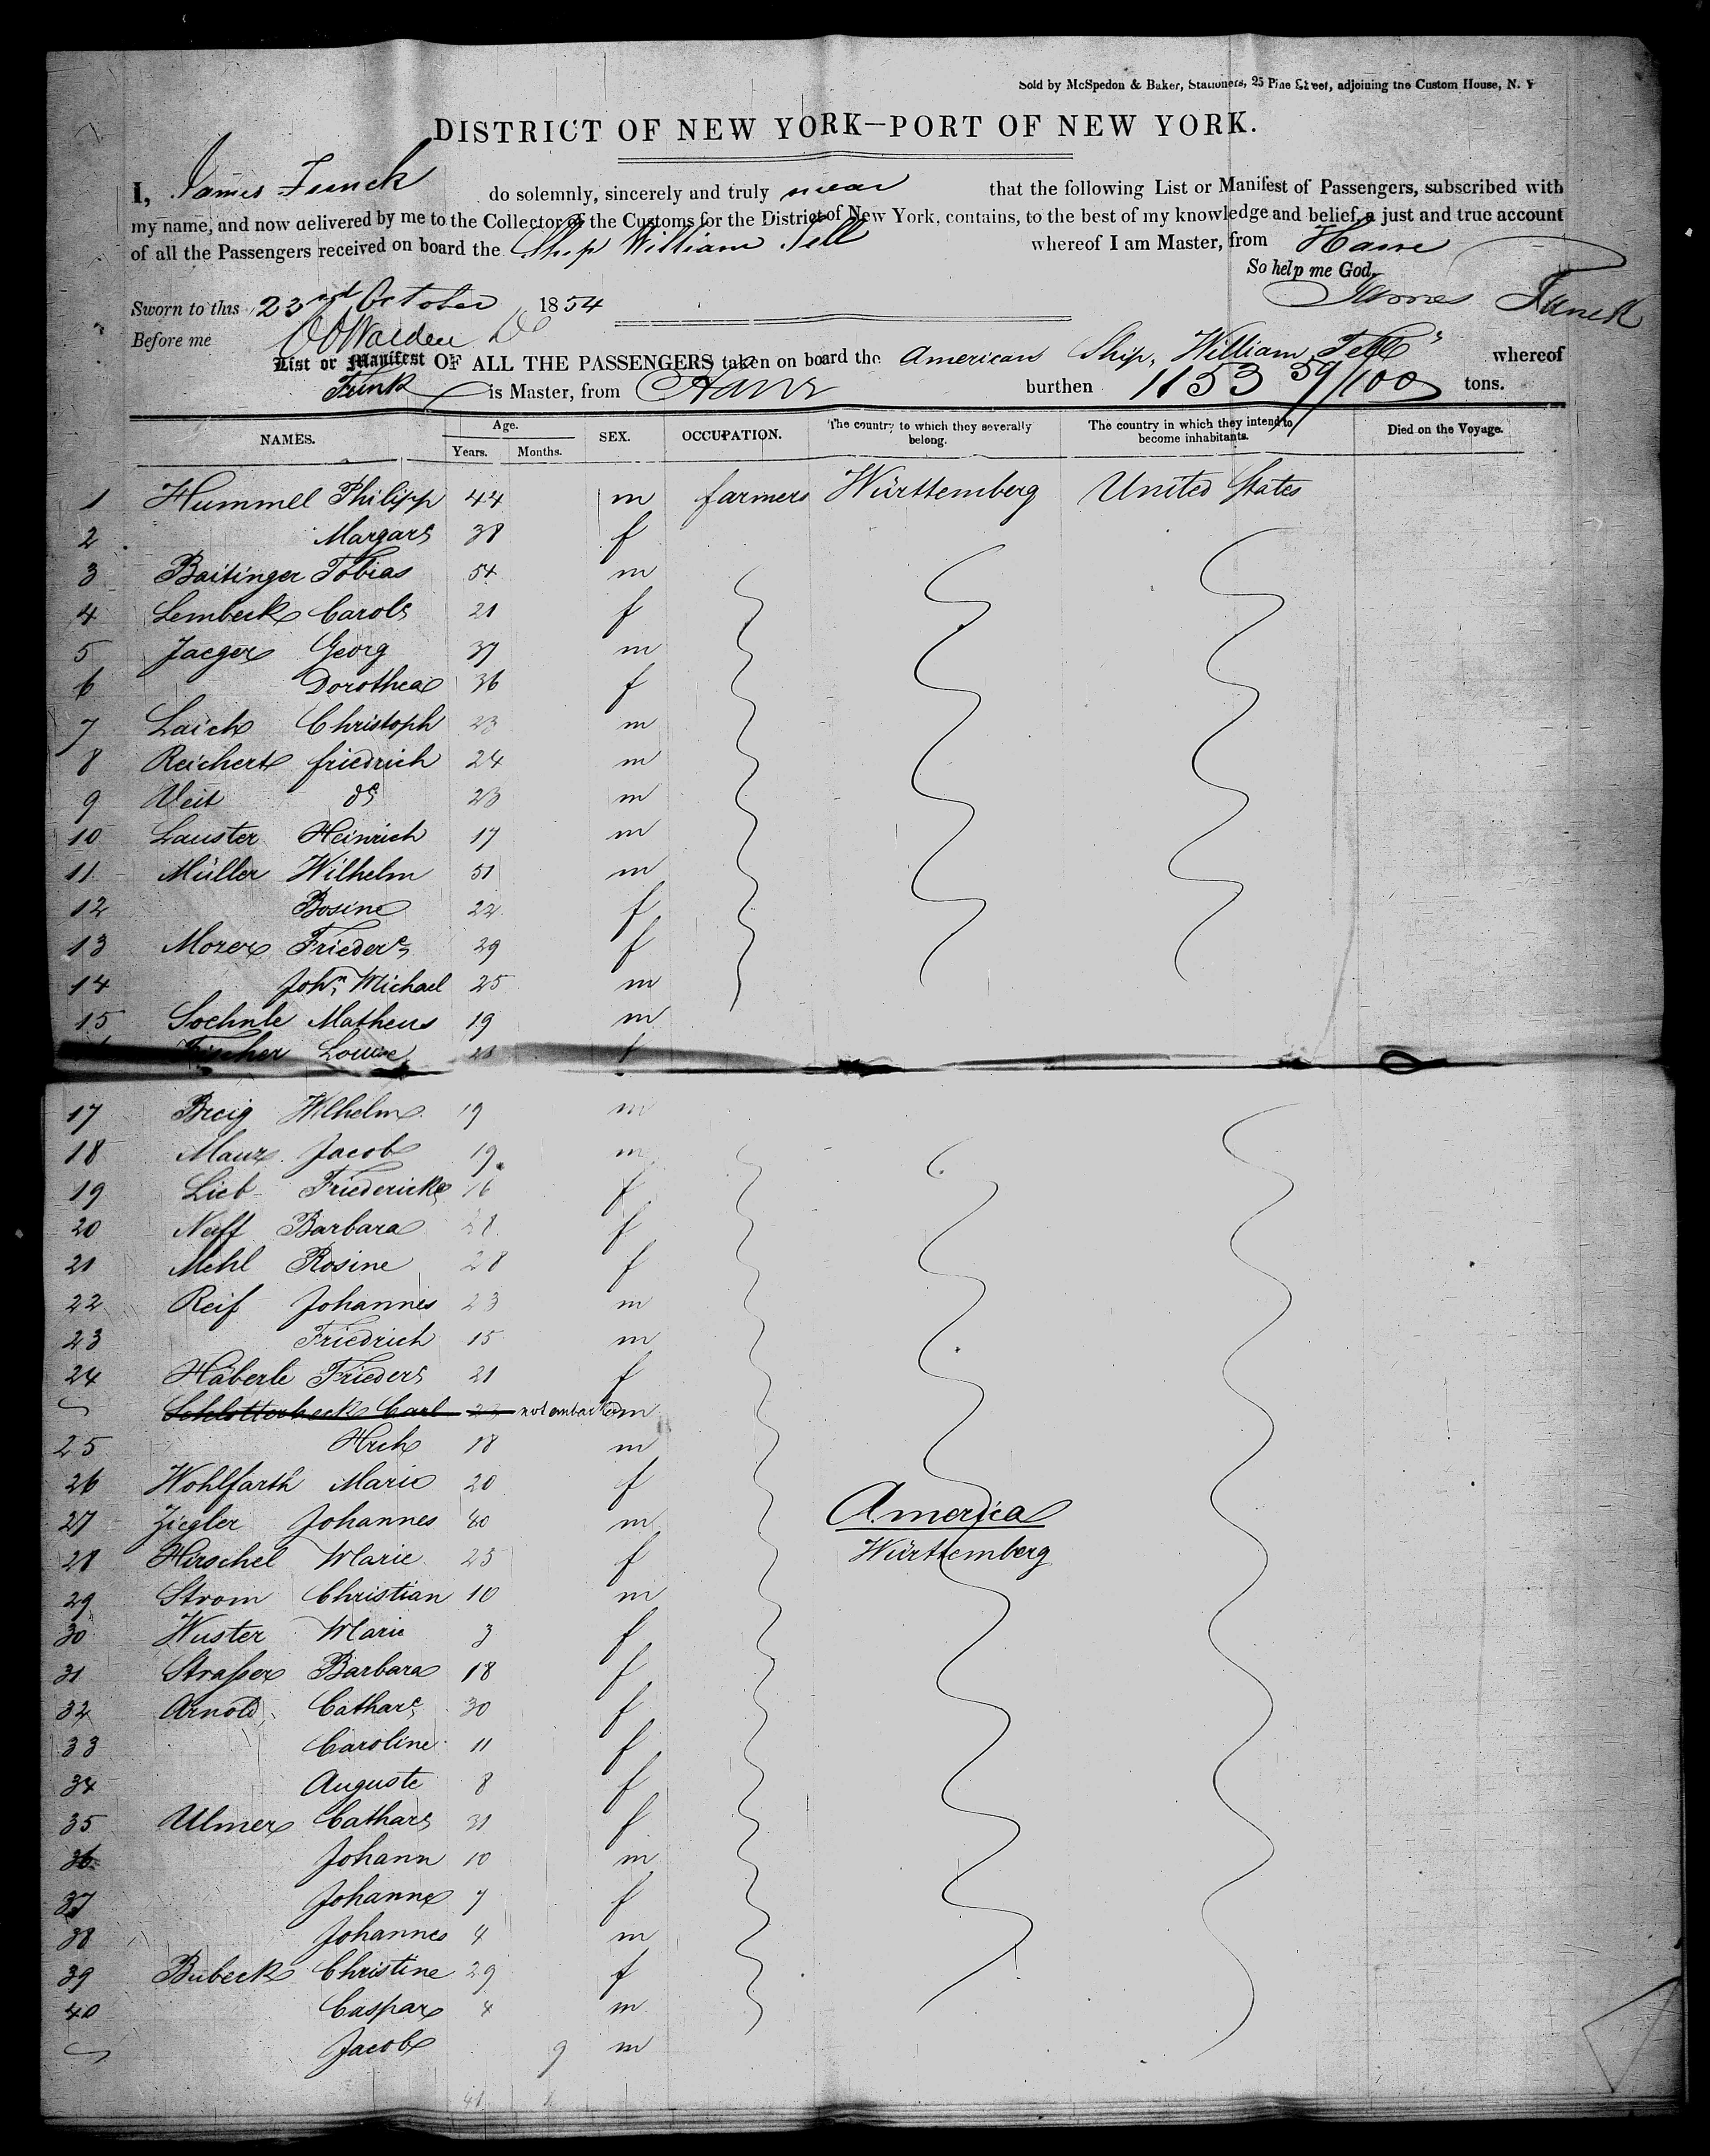 Sold by McSpedon & Baker, Stationers, 25 Pine Street, adjoining the Custom House, N. Y
DISTRICT OF NEW YORK—PORT OF NEW YORK.
I, James Funck do solemnly, sincerely and truly swear that the following List or Manifest of Passengers, subscribed with
my name, and now delivered by me to the Collector of the Customs for the District of New York, contains, to the best of my knowledge and belief, a just and true account
of all the Passengers received on board the Ship William Tell whereof I am Master, from Havre
So help me God.
James Funck
Sworn to this 23rd October 1854
Before me Walden
List or Manifest OF ALL THE PASSENGERS taken on board the American Ship, William Tell" whereof
Funk is Master, from Havre burthen 1153 59/100 tons.
NAMES. Age. Years. Months. SEX. OCCUPATION. The country to which they severally belong. The country in which they intend to become inhabitants. Died on the Voyage.
1 Hummel Philipp 44 m farmers Württemberg United States
2 Margars 38 f
3 Baitinger Tobias 54 m
4 Lembeck Carols 21 f
5 Jaeger Georg 37 m
6 Dorothea 36 f
7 Laich Christoph 23 m
8 Reichert friedrich 24 m
9 Veit do 23 m
10 Lauster Heinrich 17 m
11 Müller Wilhelm 51 m
12 Rosine 22 f
13 Morer Friedere 29 f
14 John Michael 25 m
15 Soehnle Matheus 19 m
Fischer Louise 23 f
17 Breig Wilhelm 19 m
18 Maurz Jacob 19 m
19 Lieb Friedericke 16 f
20 Neff Barbara 28 f
21 Mehl Rosine 28 f
22 Reif Johannes 23 m
23 Friedrich 15 m
24 Häberle Frieders 21 f
Schlotterbeck Carl 23 not embarked m
25 Hrch 18 m
26 Wohlfarth Marie 20 f
27 Ziegler Johannes 80 m America
28 Hirschel Marie 25 f Württemberg
29 Strom Christian 10 m
30 Wuster Marie 3 f
31 Straßer Barbara 18 f
32 Arnold Cathare 30 f
33 Caroline 11 f
34 Auguste 8 f
35 Ulmer Cathars 31 f
36 Johann 10 m
37 Johanne 7 f
38 Johannes 4 m
39 Bubeck Christine 29 f
40 Caspar 4 m
Jacob 9 m
41